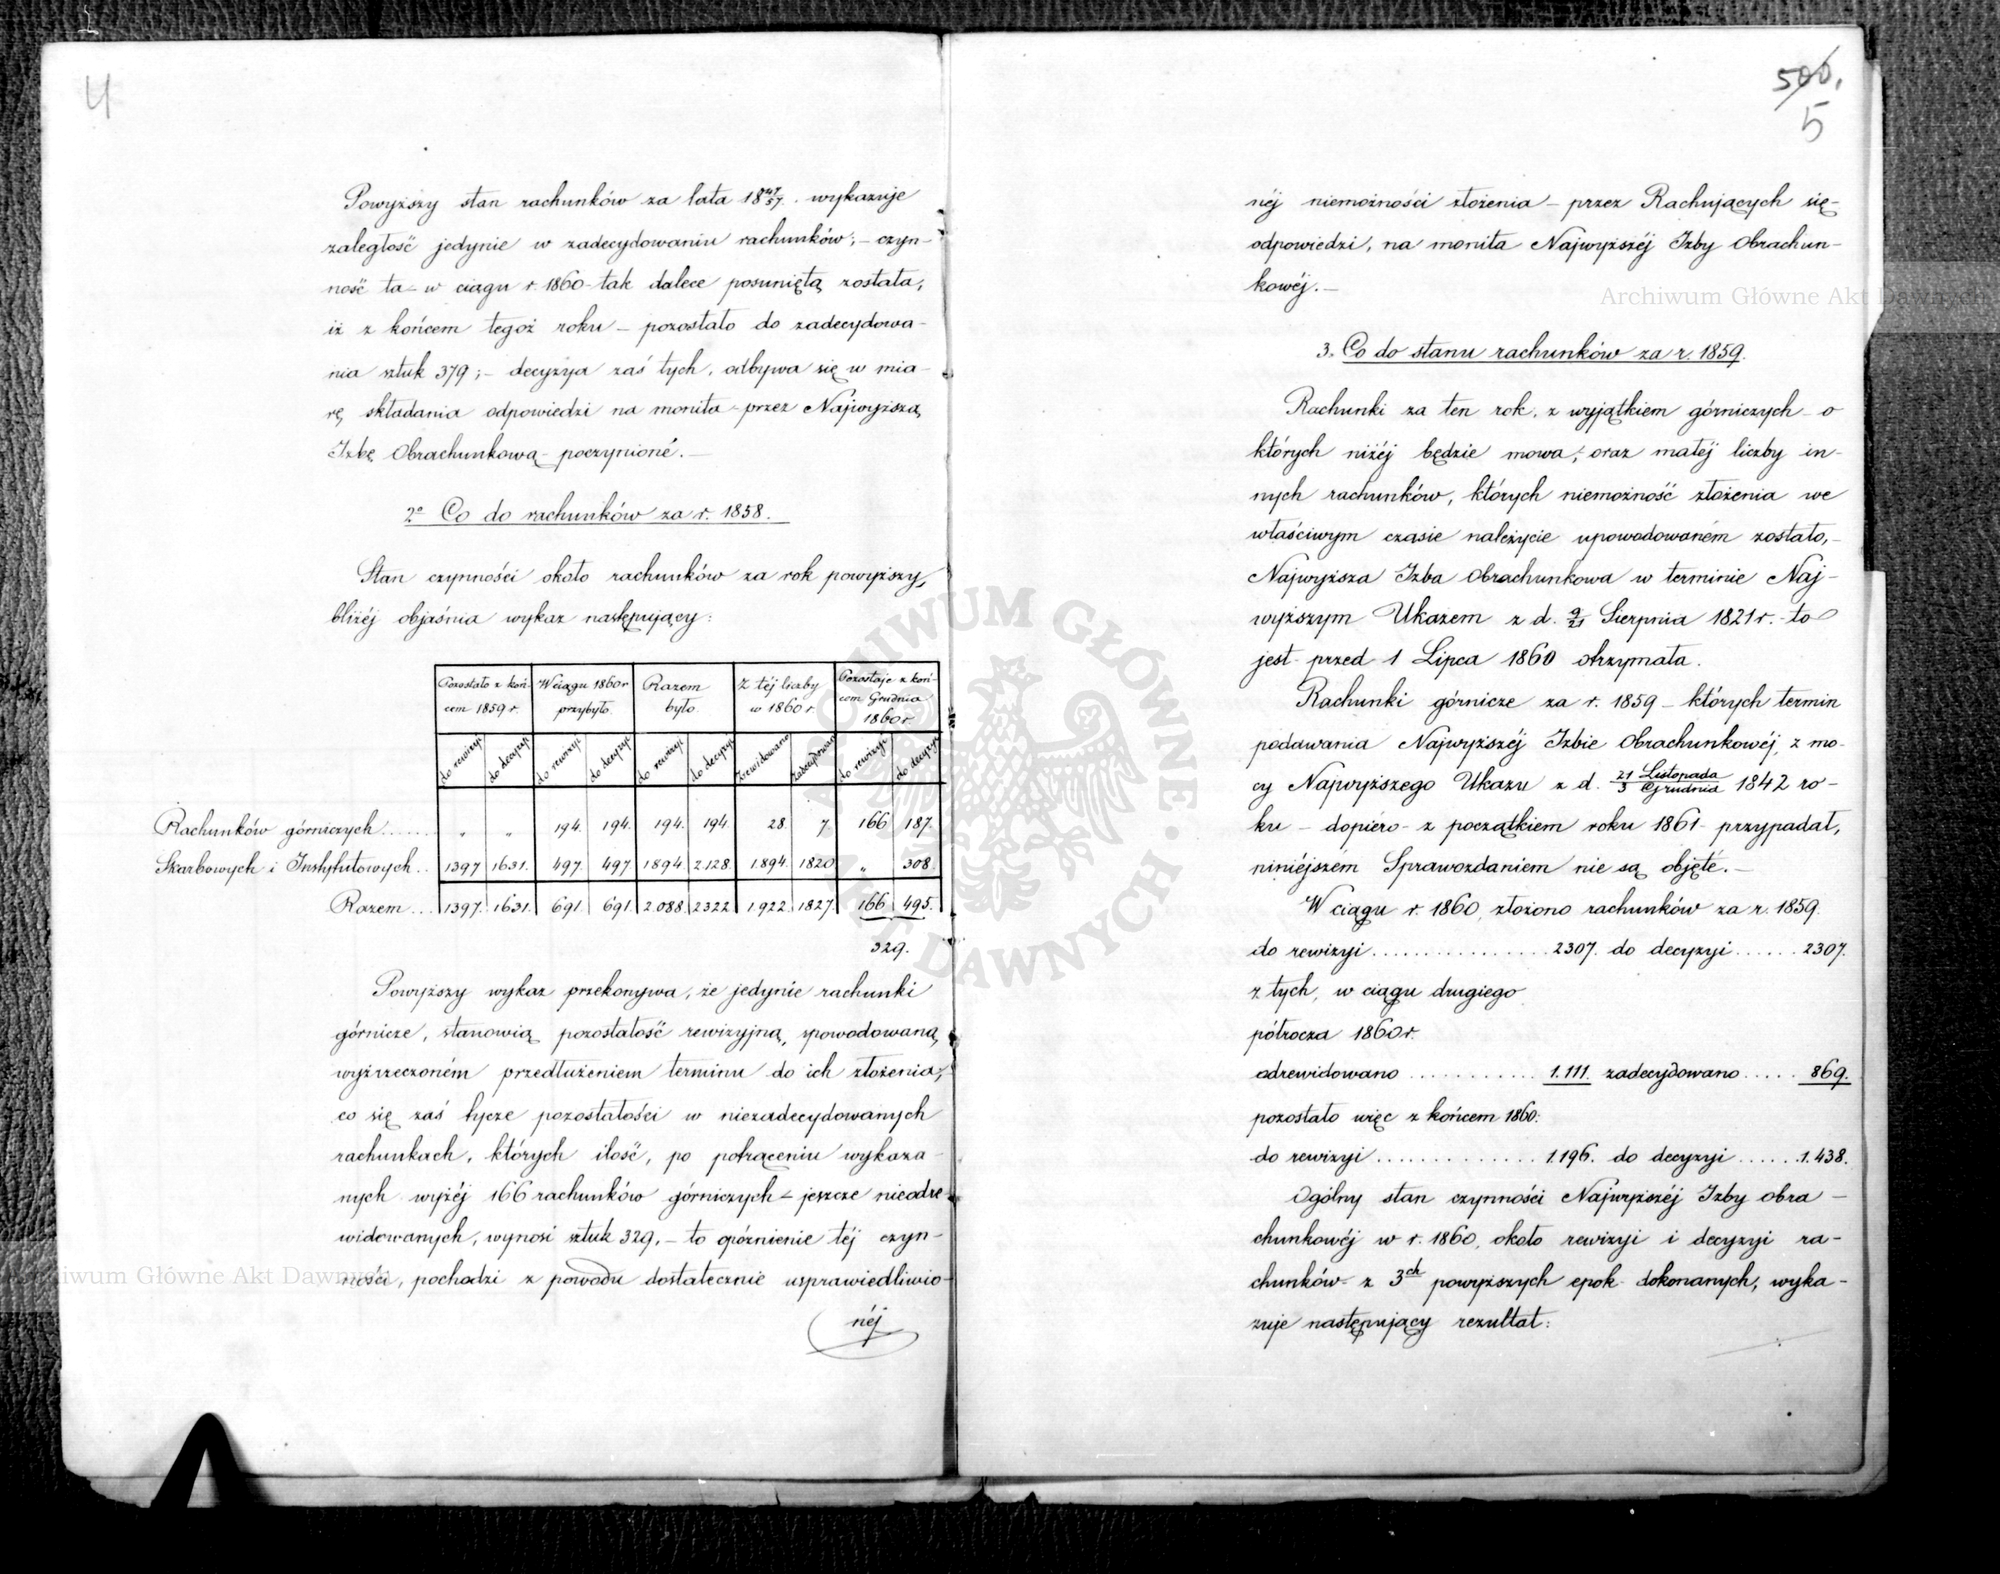 4
Powyższy stan rachunków za lata 18 47/57. wykazuje
zaległość jedynie w zadecydowaniu rachunków; – czyn-
ność ta – w ciągu r. 1860 – tak dalece posuniętą została,
iż z końcem tegoż roku – pozostało do zadecydowa-
nia sztuk 379; – decyzya zaś tych, odbywa się w mia-
rę składania odpowiedzi na monita – przez Najwyższą
Izbę Obrachunkową – poczynioné. –
2º Co do rachunków za r. 1858.
Stan czynności około rachunków za rok powyższy,
bliżéj objaśnia wykaz następujący:
Pozostało z koń-cem 1859 r. | W ciągu 1860 r przybyło. | Razem było. | Z téj liczby w 1860 r. | Pozostaje z koń-cem Grudnia 1860 r
do rewizyi | do decyzyi | do rewizyi | do decyzyi | do rewizyi | do decyzyi | zrewidowano | zadecydowano | do rewizyi | do decyzyi
Rachunków górniczych...... „ „ 194. 194. 194. 194 28. 7. 166 187.
Skarbowych i Instytutowych.. 1397 1631. 497. 497 1894. 2128. 1.894. 1820 „ 308.
Razem... 1397. 1631. 691. 691. 2.088. 2322. 1.922. 1827 166 495.
329.
Powyższy wykaz przekonywa, że jedynie rachunki
górnicze, stanowią pozostałość rewizyjną, spowodowaną,
wyżrzeczoném przedłużeniem terminu do ich złożenia,
co się zaś tycze pozostałości w niezadecydowanych
rachunkach, których ilość, po potrąceniu wykaza-
nych wyżéj 166 rachunków górniczych – jeszcze nieodre
widowanych, wynosi sztuk 329, – to opóźnienie téj czyn-
ności, pochodzi z powodu dostatecznie usprawiedliwio-
néj
500.
5
néj niemożności złożenia – przez Rachujących się –
odpowiedzi, na monita Najwyższéj Izby Obrachun-
kowéj. –
3. Co do stanu rachunków za r. 1859.
Rachunki za ten rok, z wyjątkiem górniczych – o
których niżéj będzie mowa, – oraz małéj liczby in-
nych rachunków, których niemożność złożenia we
właściwym czasie należycie upowodowaném zostało, –
Najwyższa Izba Obrachunkowa w terminie Naj-
wyższym Ukazem z d. 9/21 Sierpnia 1821 r. – to
jest – przed 1 Lipca 1860 otrzymała.
Rachunki górnicze za r. 1859 – których termin
podawania Najwyższéj Izbie Obrachunkowéj, z mo-
cy Najwyższego Ukazu z d. 21 Listopada/3 Grudnia 1842 ro-
ku – dopiéro – z początkiem roku 1861 – przypadał,
niniéjszém Sprawozdaniem nie są objęté. –
W ciągu r. 1860, złożono rachunków za r. 1859.
do rewizyi................2307. do decyzyi......2307.
z tych, w ciągu drugiego
półrocza 1860 r.
odrewidowano............1.111. zadecydowano.....869.
pozostało więc z końcem 1860:
do rewizyi..............1.196. do decyzyi......1.438.
Ogólny stan czynności Najwyższéj Izby obra-
chunkowéj w r. 1860, około rewizyi i decyzyi ra-
chunków – z 3ch powyższych epok – dokonanych, wyka-
zuje następujący rezultat:
Archiwum Główne Akt Dawnych
ARCHIWUM GŁÓWNE AKT DAWNYCH
Archiwum Główne Akt Dawnych